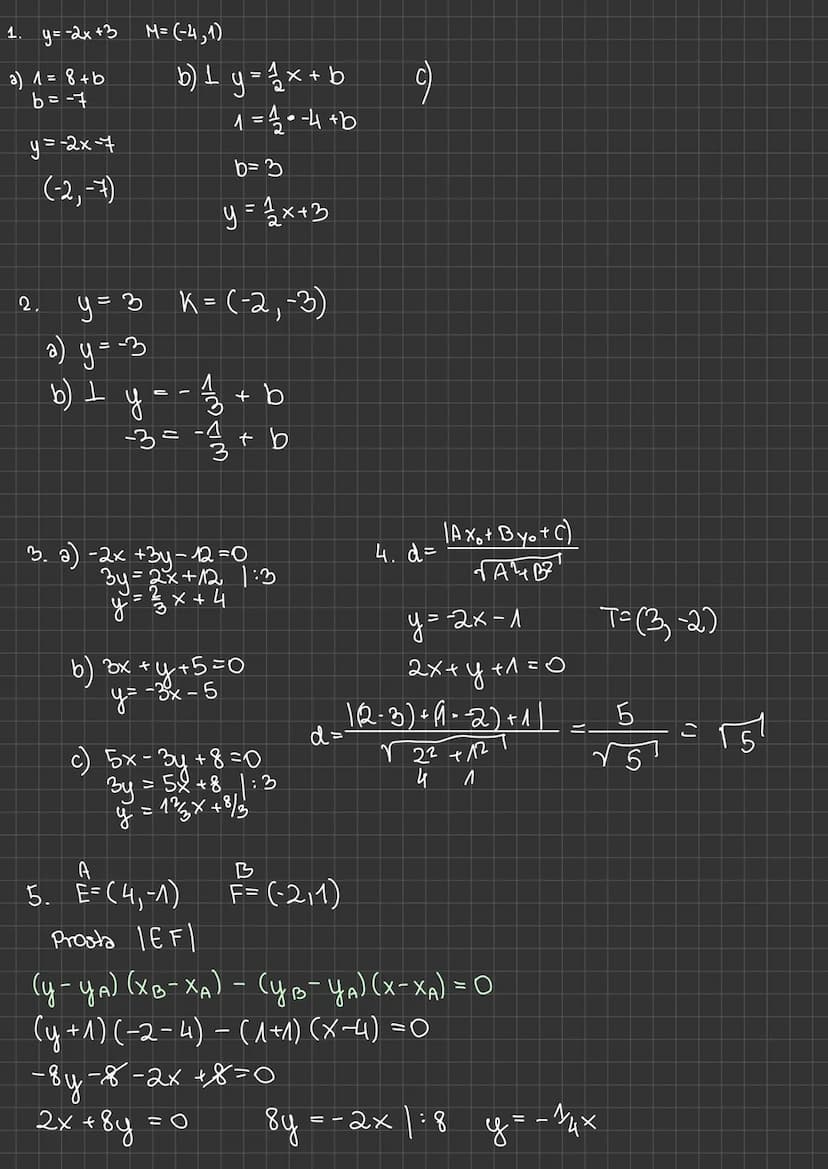 1. y=-2x+3 M=(-4,1)
a) 1=8+b
b=-7
y=-2x-7
(-2,-7)
b) ⊥ y=½x+b
1=½•-4+b
b=3
y=½x+3
c)
2. y=3 K=(-2,-3)
a) y=-3
b) ⊥ y=-⅓+b
-3=-⅓+b
3. a) -2x+3y-12=0
3y=2x+12 |:3
y=⅔x+4
b) 3x+y+5=0
y=-3x-5
c) 5x-3y+8=0
3y=5x+8 |:3
y=1⅔x+8/3
4. d=|Ax₀+By₀+C)/√A²+B²
y=-2x-1 T=(3,-2)
2x+y+1=0
d=|(2·3)+(1·-2)+1|/√2²+1² = 5/√5 = √5
4 1
A B
5. E=(4,-1) F=(-2,1)
Prosta |EF|
(y-yA)(xB-xA)-(yB-yA)(x-xA)=0
(y+1)(-2-4)-(1+1)(x-4)=0
-8y-8-2x+8=0
2x+8y=0 8y=-2x |:8 y=-¼x